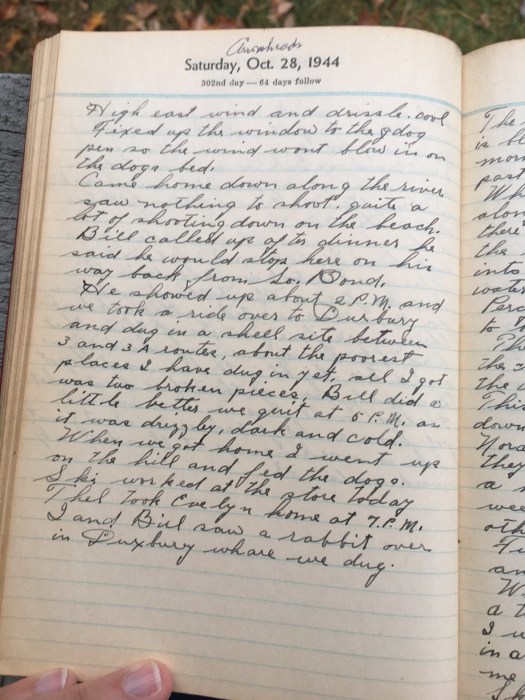 Arrowheads
Saturday, Oct. 28, 1944
302nd day — 64 days follow
High east wind and drissle. cool
Fixed up the window to the g dog
pen so the wind wont blow in on
the dogs bed.
Came home down along the river
saw nothing to shoot. quite a
lot of shooting down on the beach.
Bill called up after dinner he
said he would stop here on his
way back from So. Pond.
He showed up about 2 P.M. and
we took a ride over to Duxbury
and dug in a shell site between
3 and 3 A routes, about the poorest
places I have dug in yet, all I got
was two broken pieces, Bill did a
little better we quit at 5 P.M. as
it was drizzly, dark and cold.
When we got home I went up
on the hill and fed the dogs.
Ski worked at the store today
Thel took Evelyn home at 7.P.M.
I and Bill saw a rabbit over
in Duxbury whare we dug.
The
is bl
mor
past
Wh
alon
there
the
into
water
Perc
to
the
the
This
down
Nora
they
a
wee
oth
an
W
a
I
in a
me